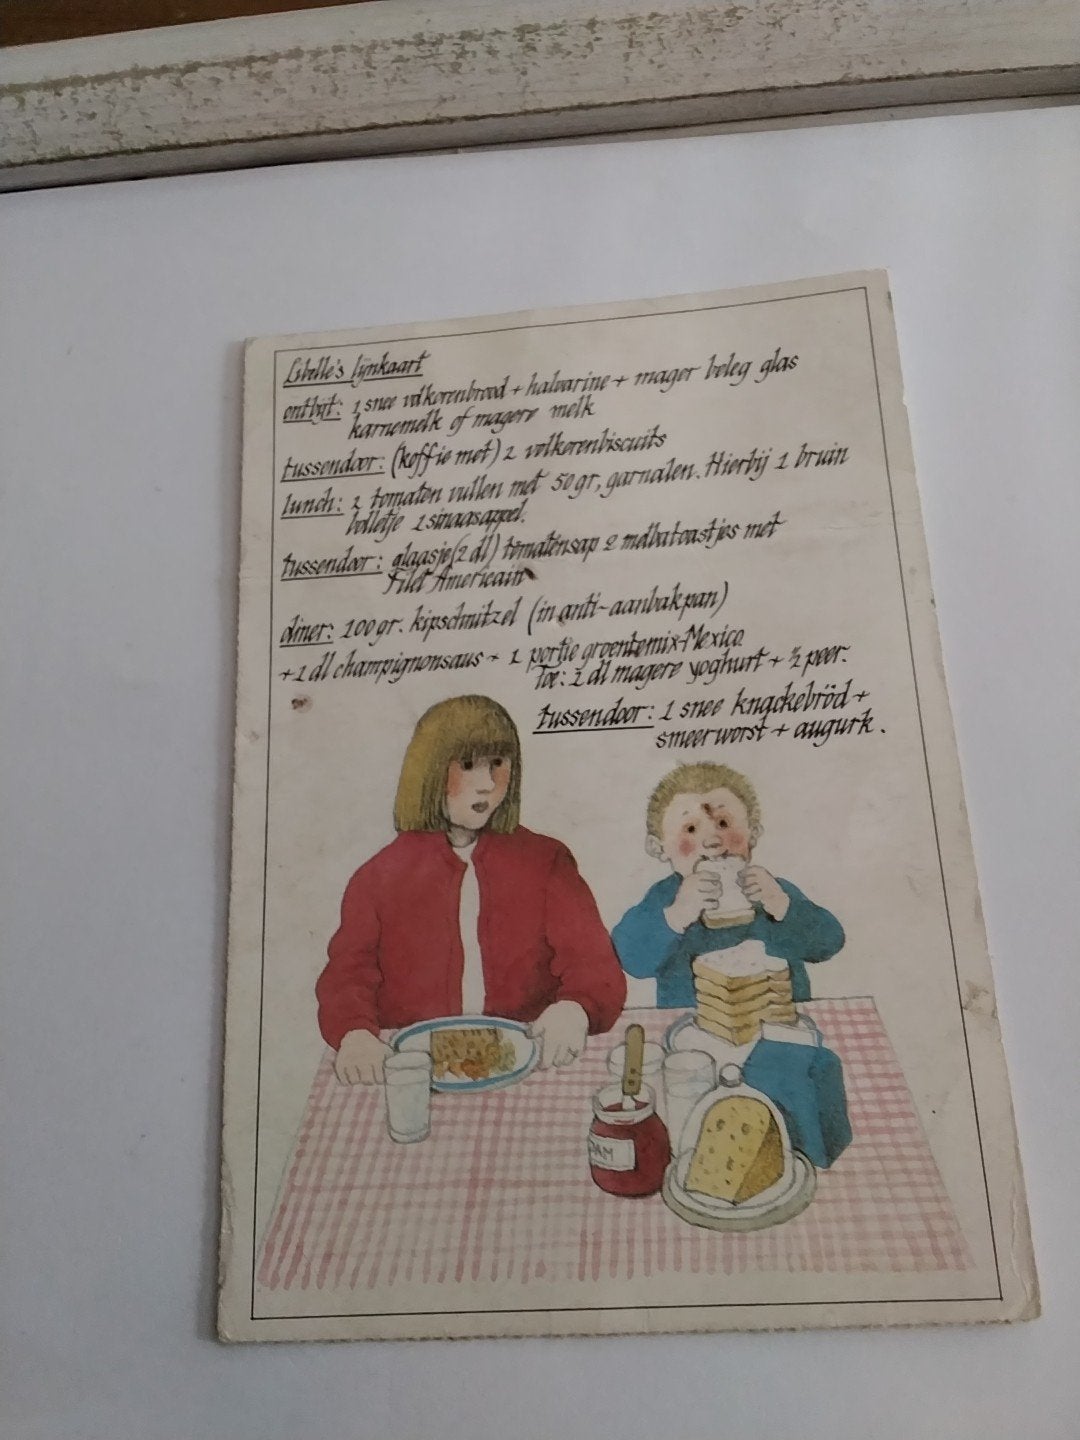 Libelle's lijnkaart
ontbijt: 1 snee volkorenbrood + halvarine + mager beleg glas
karnemelk of magere melk
tussendoor: (koffie met) 2 volkorenbiscuits
lunch: 2 tomaten vullen met 50 gr, garnalen. Hierbij 1 bruin
bolletje 1 sinaasappel.
tussendoor: glaasje (2 dl) tomatensap 2 melbatoastjes met
Filet Americain
diner: 100 gr. kipschnitzel (in anti-aanbakpan)
+ 1 dl champignonsaus + 1 portie groentemix-Mexico
toe: 2 dl magere yoghurt + ½ peer.
tussendoor: 1 snee knäckebröd +
smeerworst + augurk.
JAM